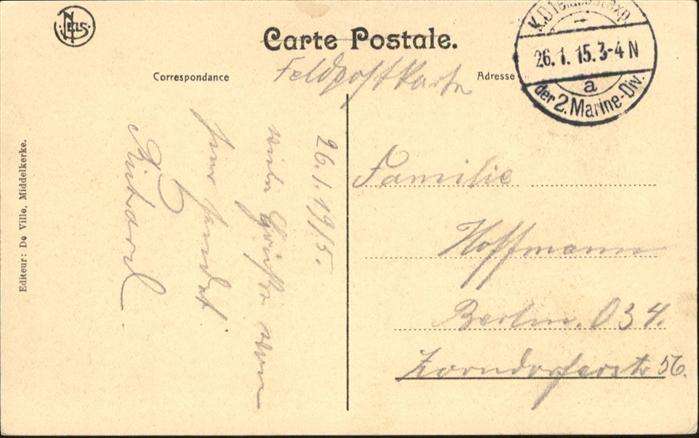 NELS
Carte Postale.
Correspondance
Feldpostkarte
Adresse
K.D. Feldpostexp.
26.1.15.3-4 N
a
der 2. Marine-Div.
26.1.1915.
viele Grüße von
Richard
Familie
Hoffmann
Berlin. O 34.
Zorndorferstr 56.
Editeur: De Ville, Middelkerke.